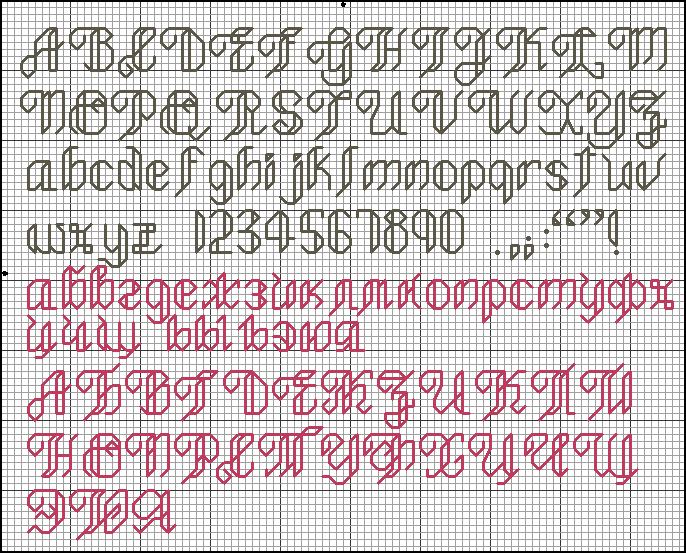 ABCDEFGHIJKLM
NOPQRSTUVWXYZ
abcdefghijklmnopqrstuv
wxyz 1234567890 .,;:“”!
абвгдежзйклмнопрстуфх
цчщ ъыьэюя
АБВГДЕЖЗИКЛМ
НОПРСТУФХЦЧЩ
ЭЮЯ